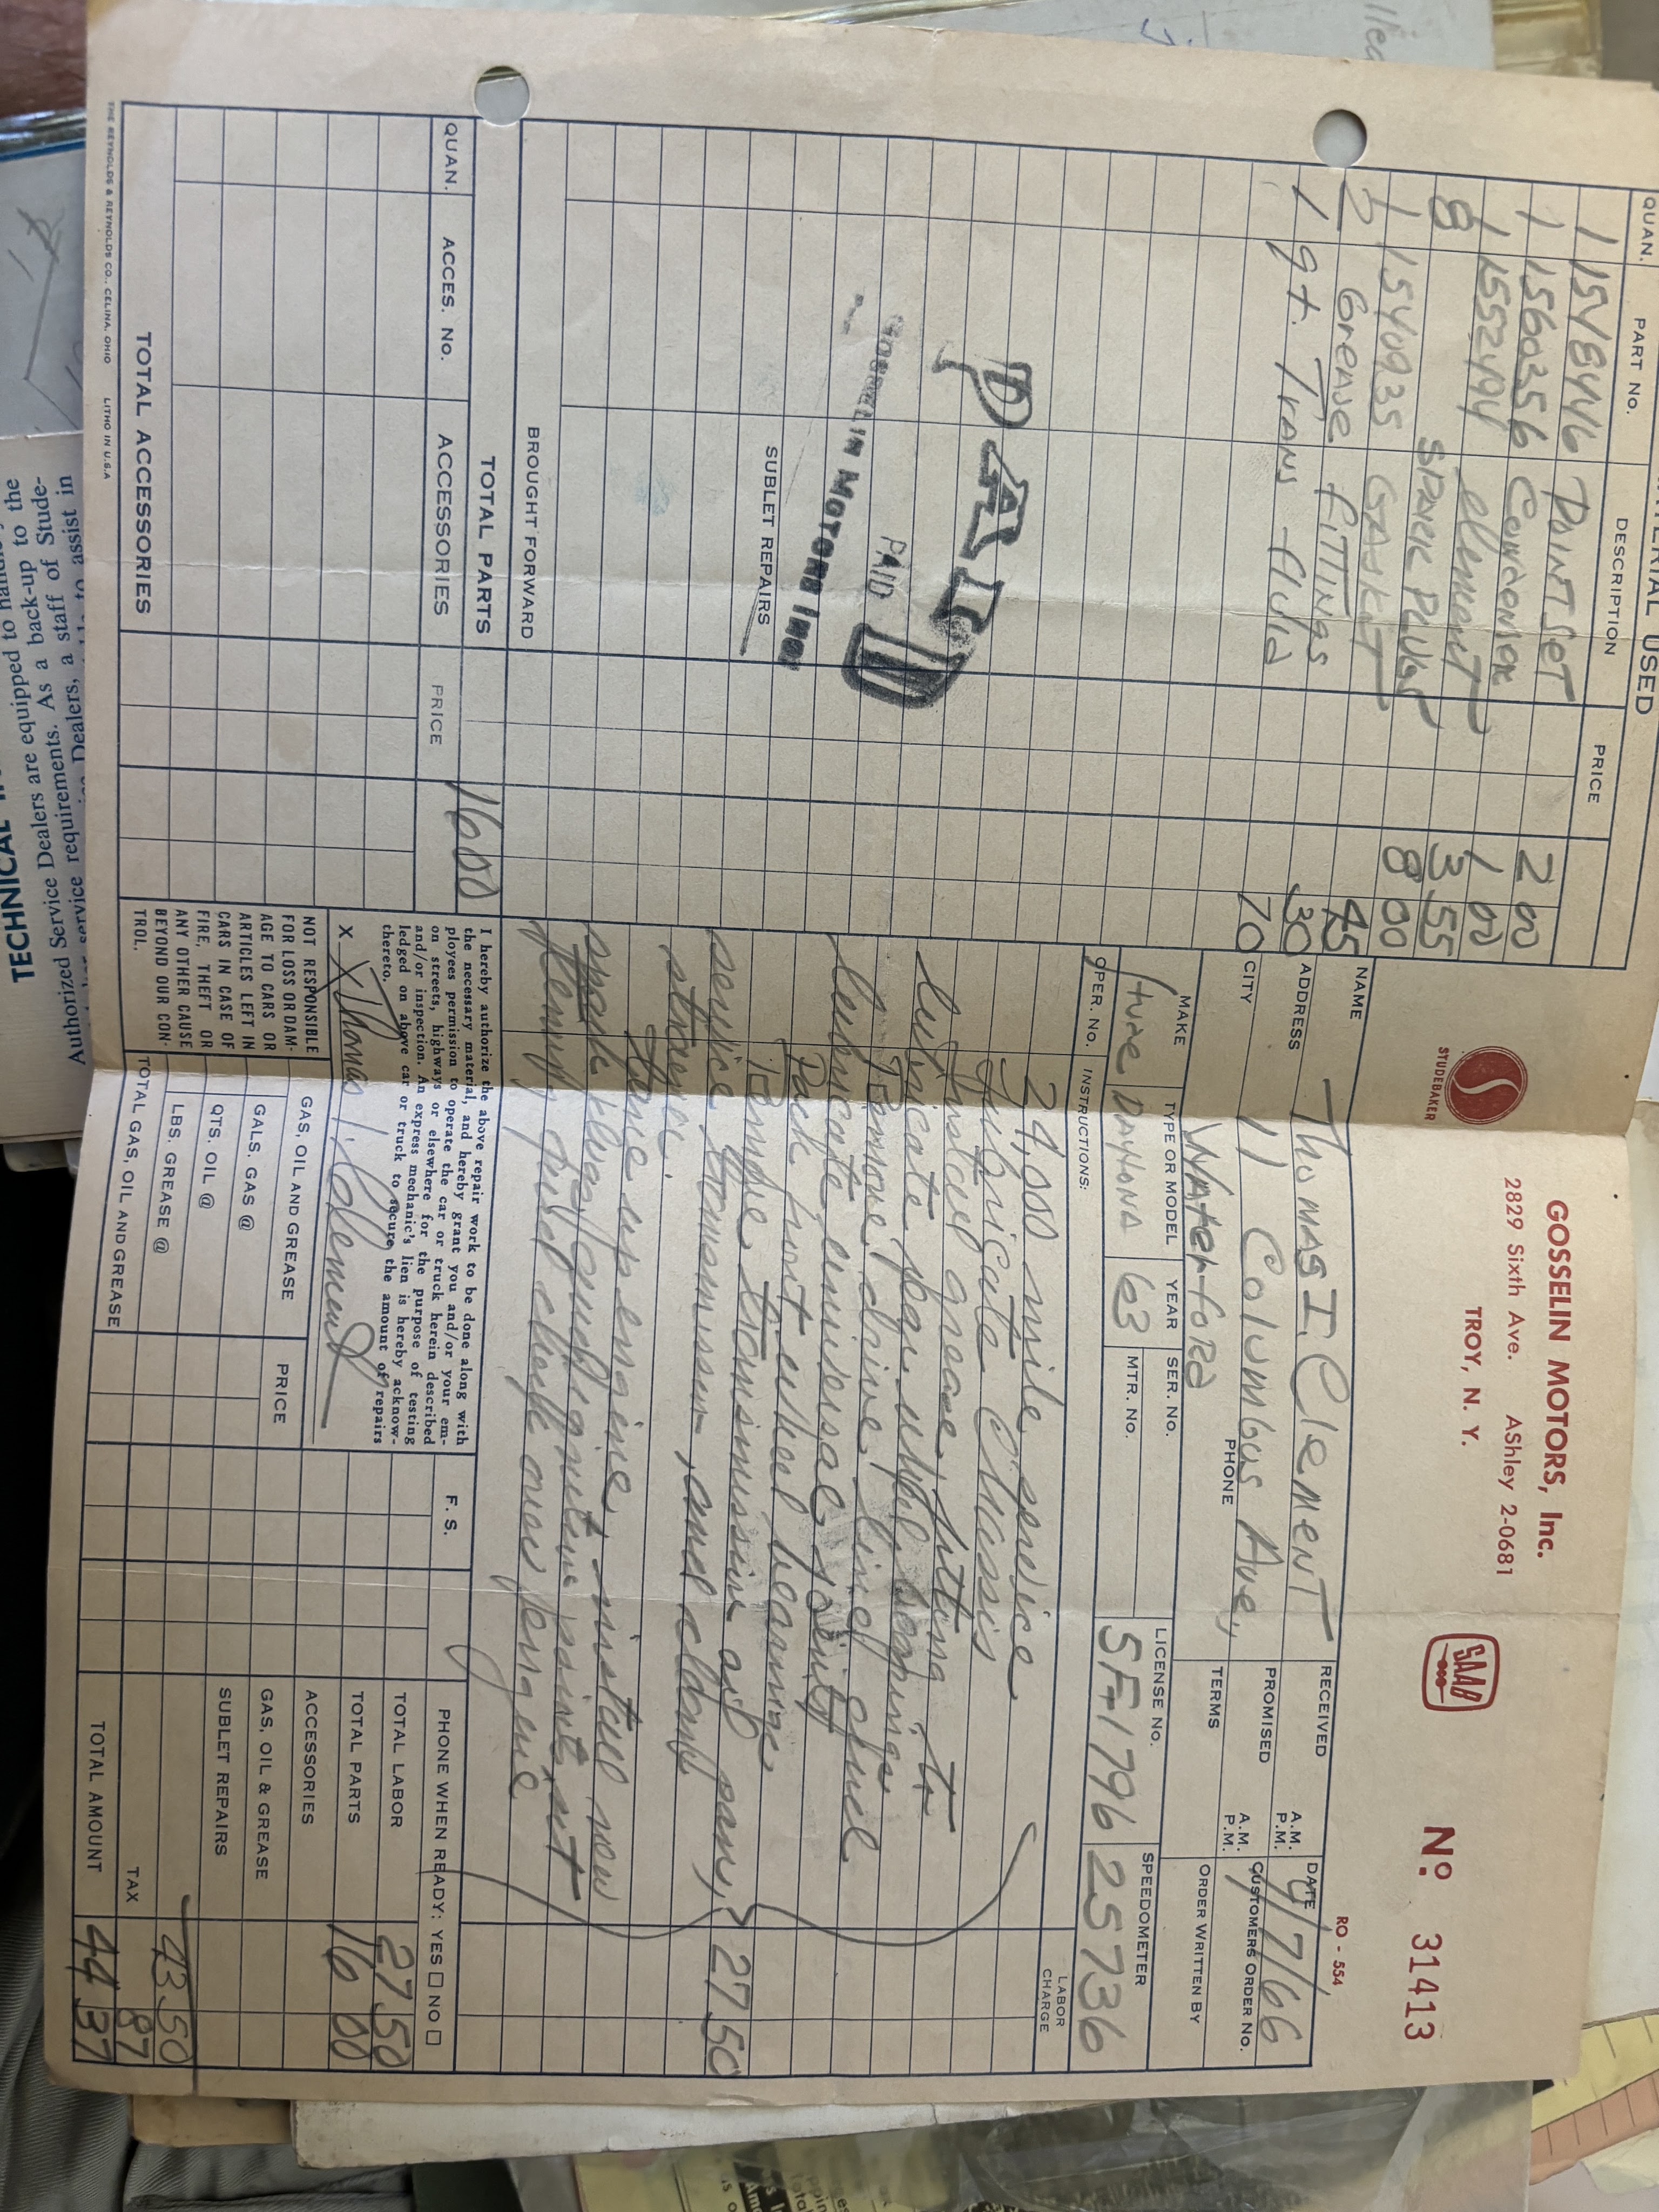 MATERIAL USED
QUAN. PART No. DESCRIPTION PRICE
1 1548446 POINT SET 2 00
1 1560356 CONDENSOR 1 00
1 1552494 element 3 55
8 SPARK PLUGS 8 00
1 1540935 GASKET 45
2 Grease fittings 30
1 qt. Trans fluid 70
PAID
PAID
GOSSELIN MOTORS INC.
SUBLET REPAIRS
BROUGHT FORWARD
TOTAL PARTS 16 00
QUAN. ACCES. No. ACCESSORIES PRICE
TOTAL ACCESSORIES
THE REYNOLDS & REYNOLDS CO., CELINA, OHIO LITHO IN U.S.A
STUDEBAKER
GOSSELIN MOTORS, Inc.
2829 Sixth Ave. AShley 2-0681
TROY, N. Y.
SAAB
No. 31413
RO - 554
NAME Thomas I. Clement
ADDRESS 11 Columbus Ave,
CITY Waterford
PHONE
RECEIVED A.M. P.M.
PROMISED A.M. P.M.
TERMS
DATE 4/7/66
CUSTOMERS ORDER NO.
ORDER WRITTEN BY
MAKE TYPE OR MODEL YEAR SER. NO. LICENSE NO. SPEEDOMETER
DAYTONA 63 MTR. NO. 5F-1796 25736
OPER. NO. INSTRUCTIONS: LABOR CHARGE
24,000 mile service
Lubricate Chassis
Install grease fitting to
lubricate rear wheel bearings
Remove drive line
lubricate universal joints
Pack front wheel bearings
service transmission, and clean
strainer
tune up engine, install new
spark plugs, ignition points, set
timing and check over engine
27 50
I hereby authorize the above repair work to be done along with
the necessary material, and hereby grant you and/or your em-
ployees permission to operate the car or truck herein described
on streets, highways or elsewhere for the purpose of testing
and/or inspection. An express mechanic's lien is hereby acknow-
ledged on above car or truck to secure the amount of repairs
thereto.
X X Thomas I. Clement
NOT RESPONSIBLE
FOR LOSS OR DAM-
AGE TO CARS OR
ARTICLES LEFT IN
CARS IN CASE OF
FIRE, THEFT OR
ANY OTHER CAUSE
BEYOND OUR CON-
TROL.
GAS, OIL AND GREASE PRICE
GALS. GAS @
QTS. OIL @
LBS. GREASE @
TOTAL GAS, OIL AND GREASE
F. S.
PHONE WHEN READY: YES NO
TOTAL LABOR 27 50
TOTAL PARTS 16 00
ACCESSORIES
GAS, OIL & GREASE
SUBLET REPAIRS
43 50
TAX 87
TOTAL AMOUNT 44 37
TECHNICAL
Authorized Service Dealers are equipped to
service requirements. As a back-up to the
Dealers, a staff of Stude-
to assist in